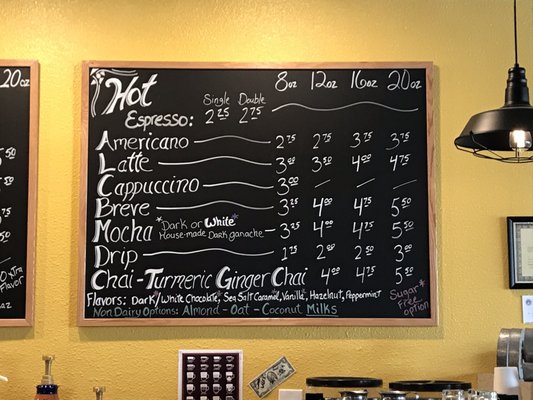 20oz
Hot 8oz 12oz 16oz 20oz
Single Double
Espresso: 2 25 2 75
Americano 2 75 3 75 3 75
Latte 3 50 4 00 4 75
Cappuccino 3 00
Breve 3 25 4 00 4 75 5 50
Mocha *Dark or White* 3 25 4 00 4 75 5 50
House-made Dark ganache
Drip 1 75 2 50 3 00
Chai-Turmeric Ginger Chai 4 00 4 75 5 50
Flavors: Dark/White Chocolate*, Sea Salt Caramel, Vanilla*, Hazelnut, Peppermint
Sugar*
Free
option
Non Dairy Options: Almond - Oat - Coconut Milks